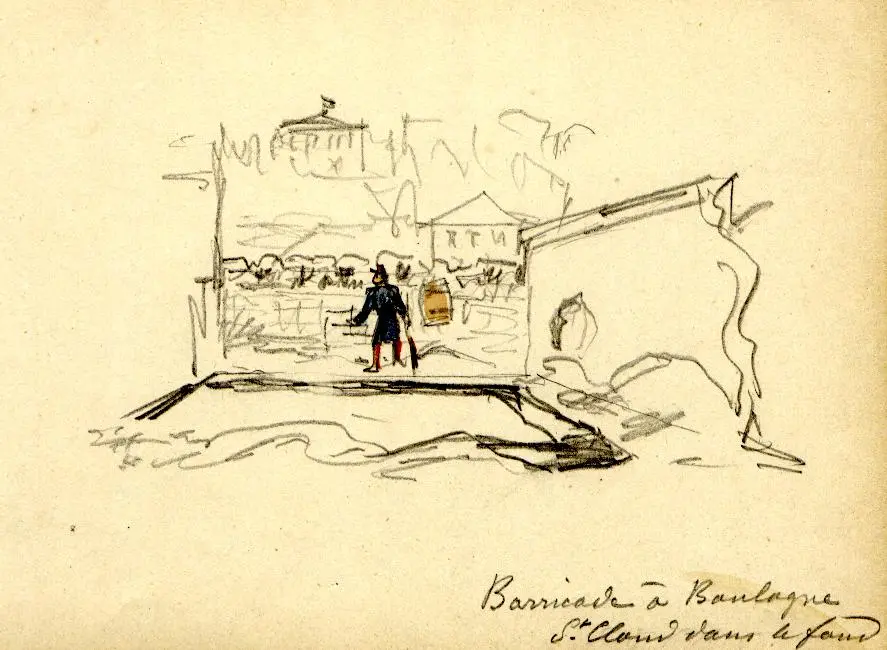 Barricade à Boulogne
St Cloud dans le fond